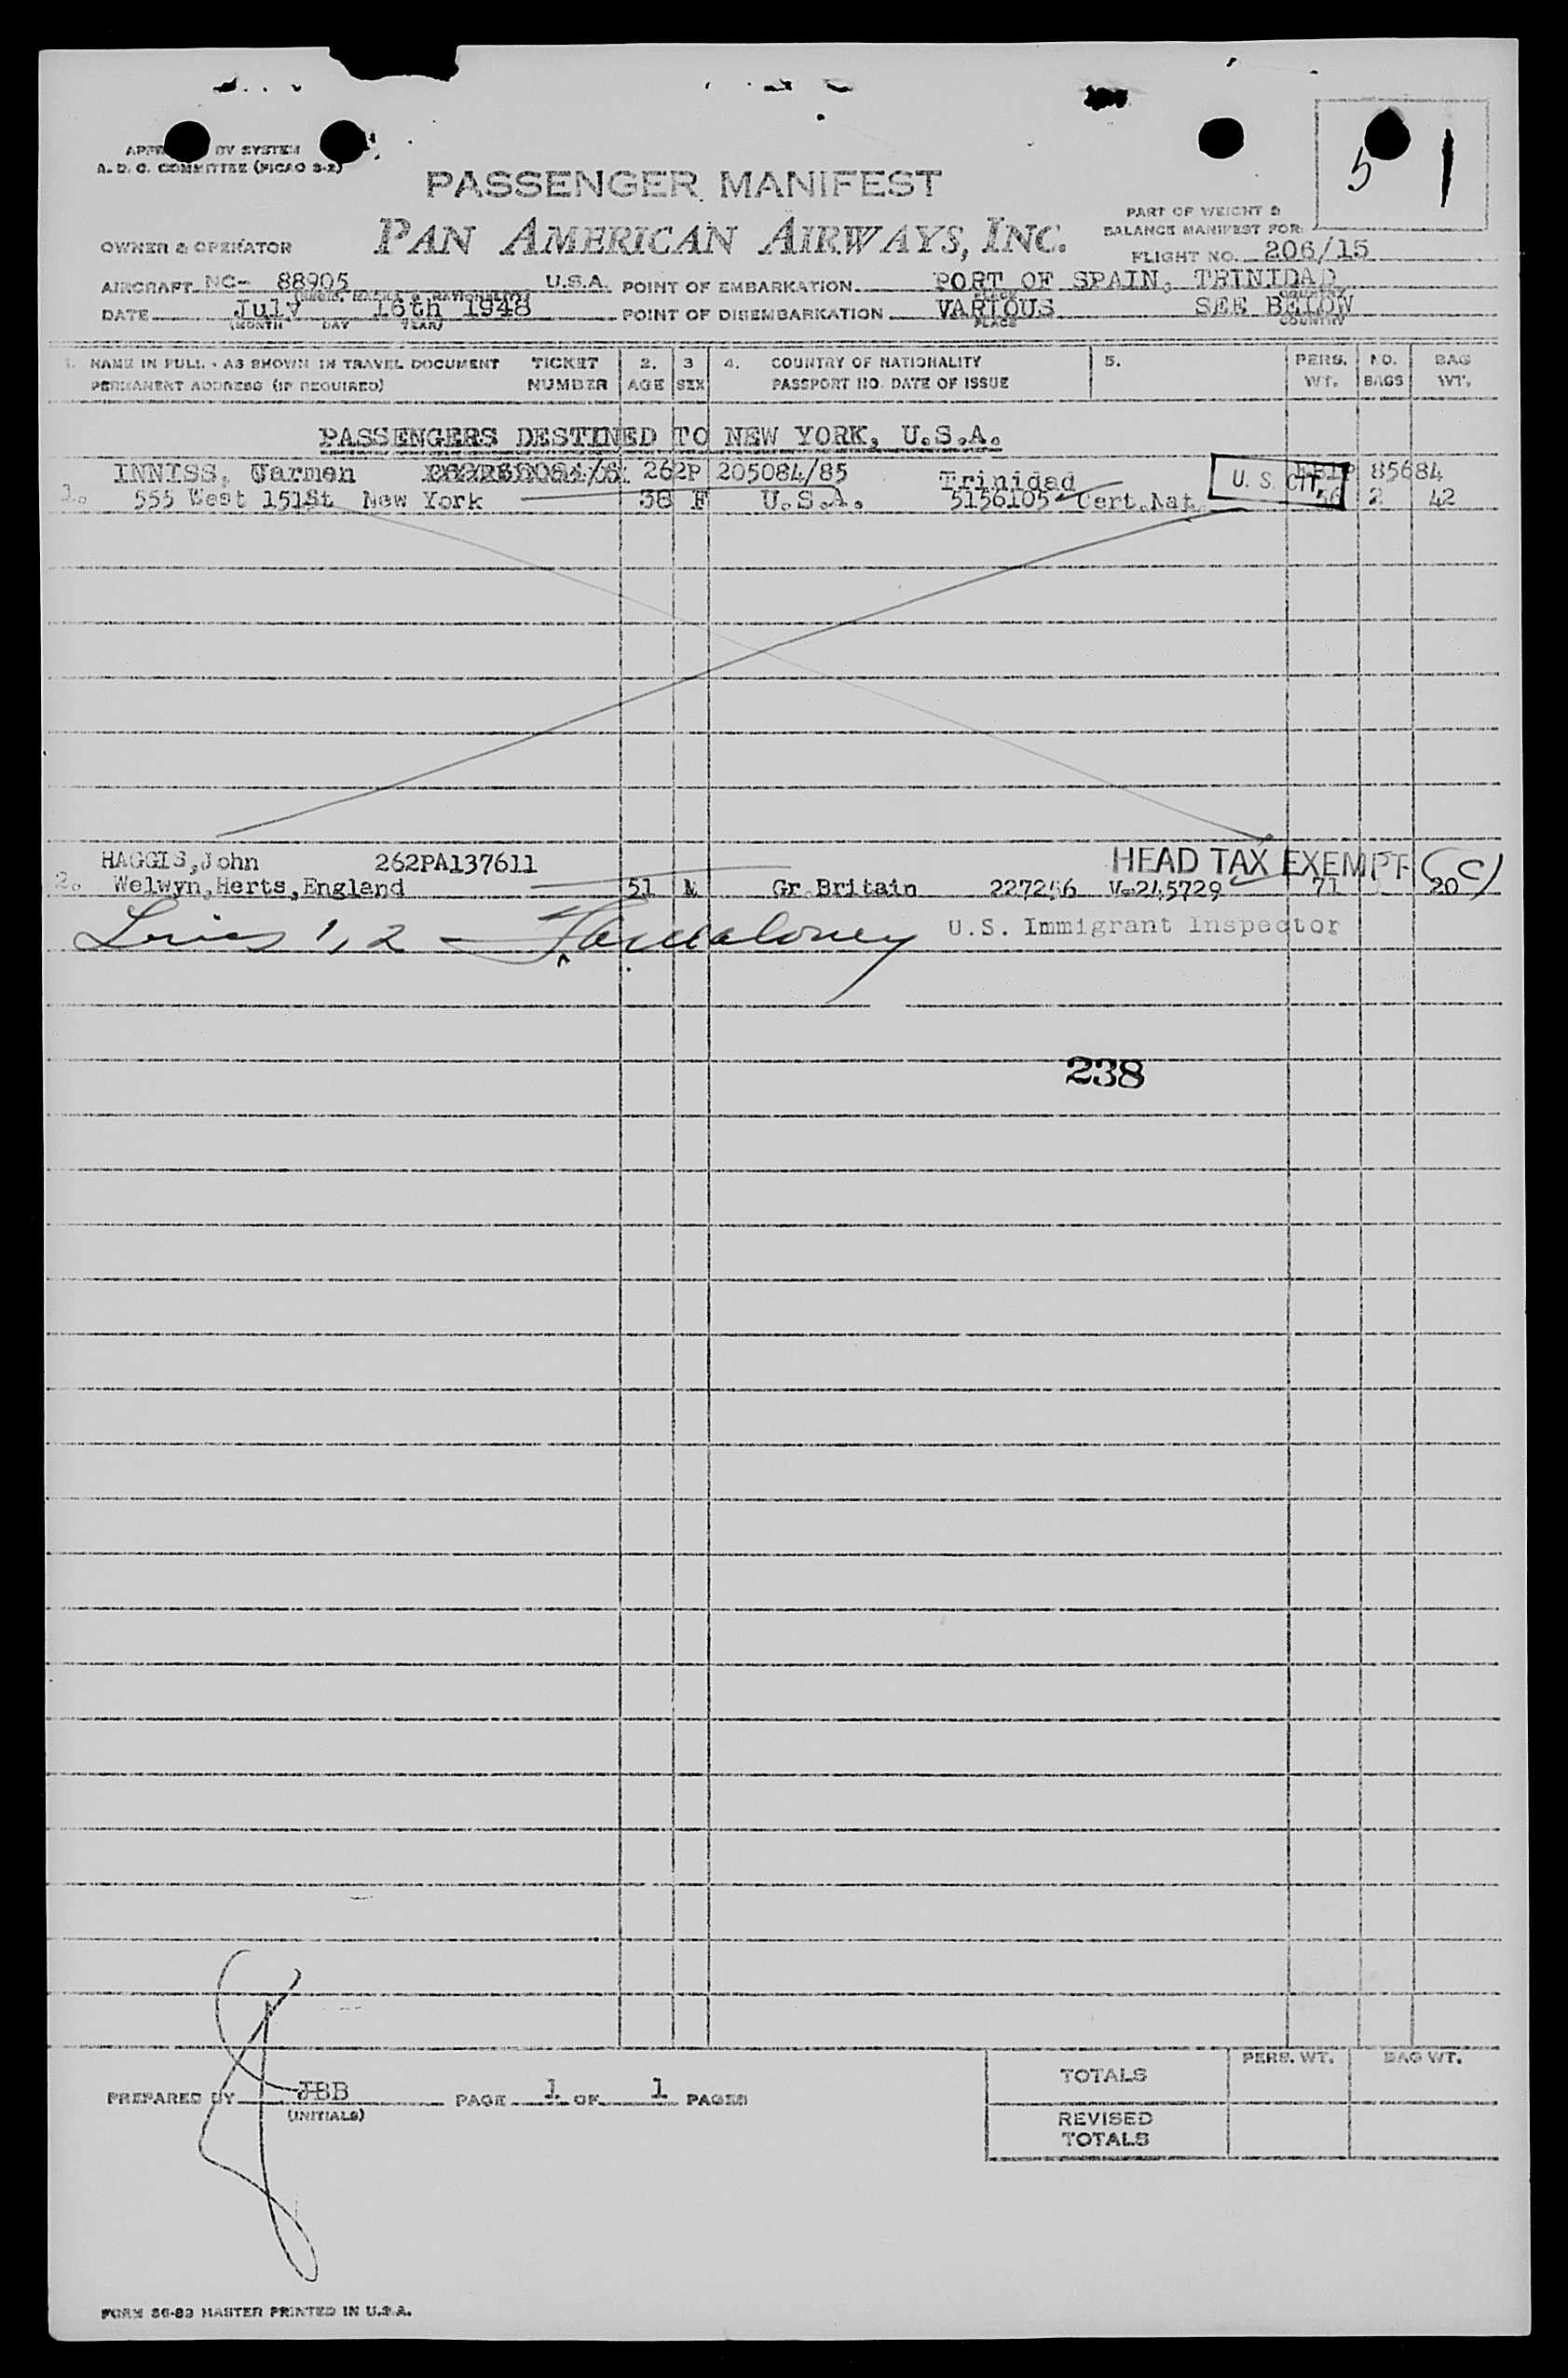 5 1
BY SYSTEM
A. D. C. COMMITTEE (PICAO S-2)
PASSENGER MANIFEST
PART OF WEIGHT &
BALANCE MANIFEST FOR:
OWNER & OPERATOR PAN AMERICAN AIRWAYS, INC.
FLIGHT NO. 206/15
AIRCRAFT NC- 88905 U.S.A. POINT OF EMBARKATION PORT OF SPAIN, TRINIDAD
DATE July 16th 1948 POINT OF DISEMBARKATION VARIOUS SEE BELOW
(MONTH DAY YEAR) PLACE COUNTRY
1. NAME IN FULL - AS SHOWN IN TRAVEL DOCUMENT TICKET 2. 3 4. COUNTRY OF NATIONALITY 5. PERS. NO. BAG
PERMANENT ADDRESS (IF REQUIRED) NUMBER AGE SEX PASSPORT NO. DATE OF ISSUE WT. BAGS WT.
PASSENGERS DESTINED TO NEW YORK, U.S.A.
INNISS, Carmen 262P 205084/85 Trinidad U. S. CIT 85684
1. 555 West 151St New York 38 F U.S.A. 5156105 Cert.Nat. 56 2 42
HAGGIS,John 262PA137611 HEAD TAX EXEMPT (C)
2. Welwyn,Herts,England 51 M Gr.Britain 227246 V-245729 71 20
Lines 1, 2 - U.S. Immigrant Inspector
238
PREPARED BY JBB PAGE 1 OF 1 PAGES
(INITIALS)
TOTALS PERS. WT. BAG WT.
REVISED
TOTALS
FORM 86-83 MASTER PRINTED IN U.S.A.